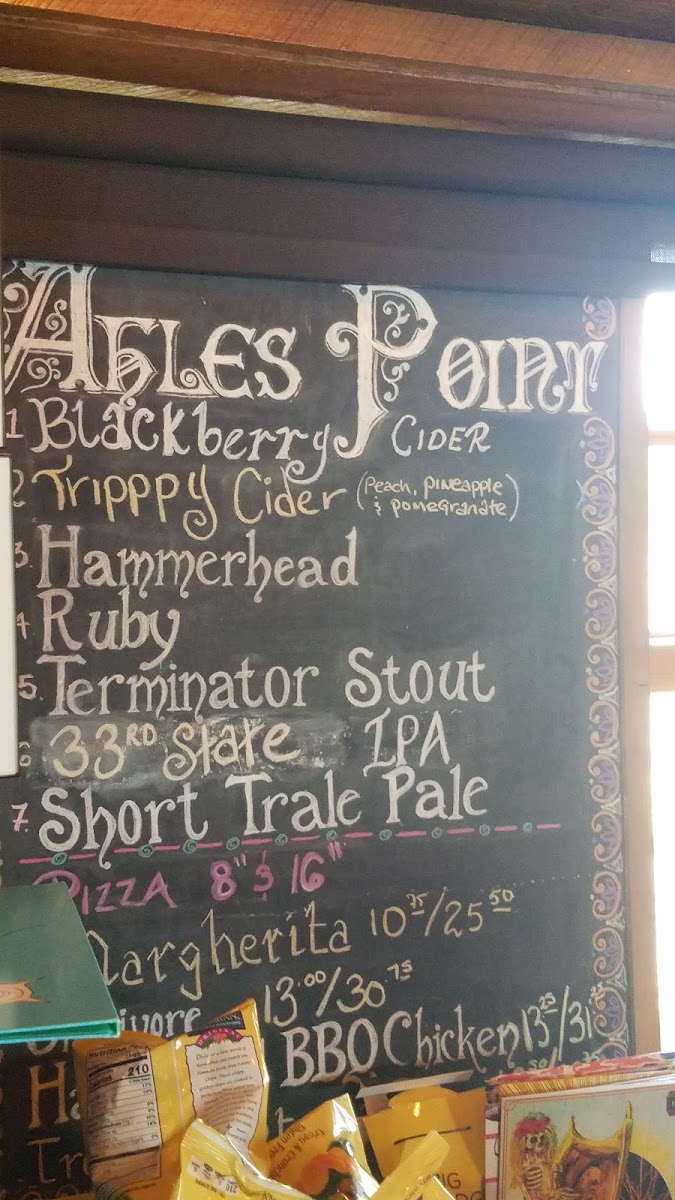 Ahles Point
1 Blackberry Cider
2 Tripppy Cider (Peach, pineapple
& pomegranate)
3. Hammerhead
4 Ruby
5. Terminator Stout
6 33RD State IPA
7. Short Trale Pale
Pizza 8" & 16"
Margherita 10 75/25 50
13.00/30 75
BBQ Chicken 13 25/31
Nutrition
Calories 210